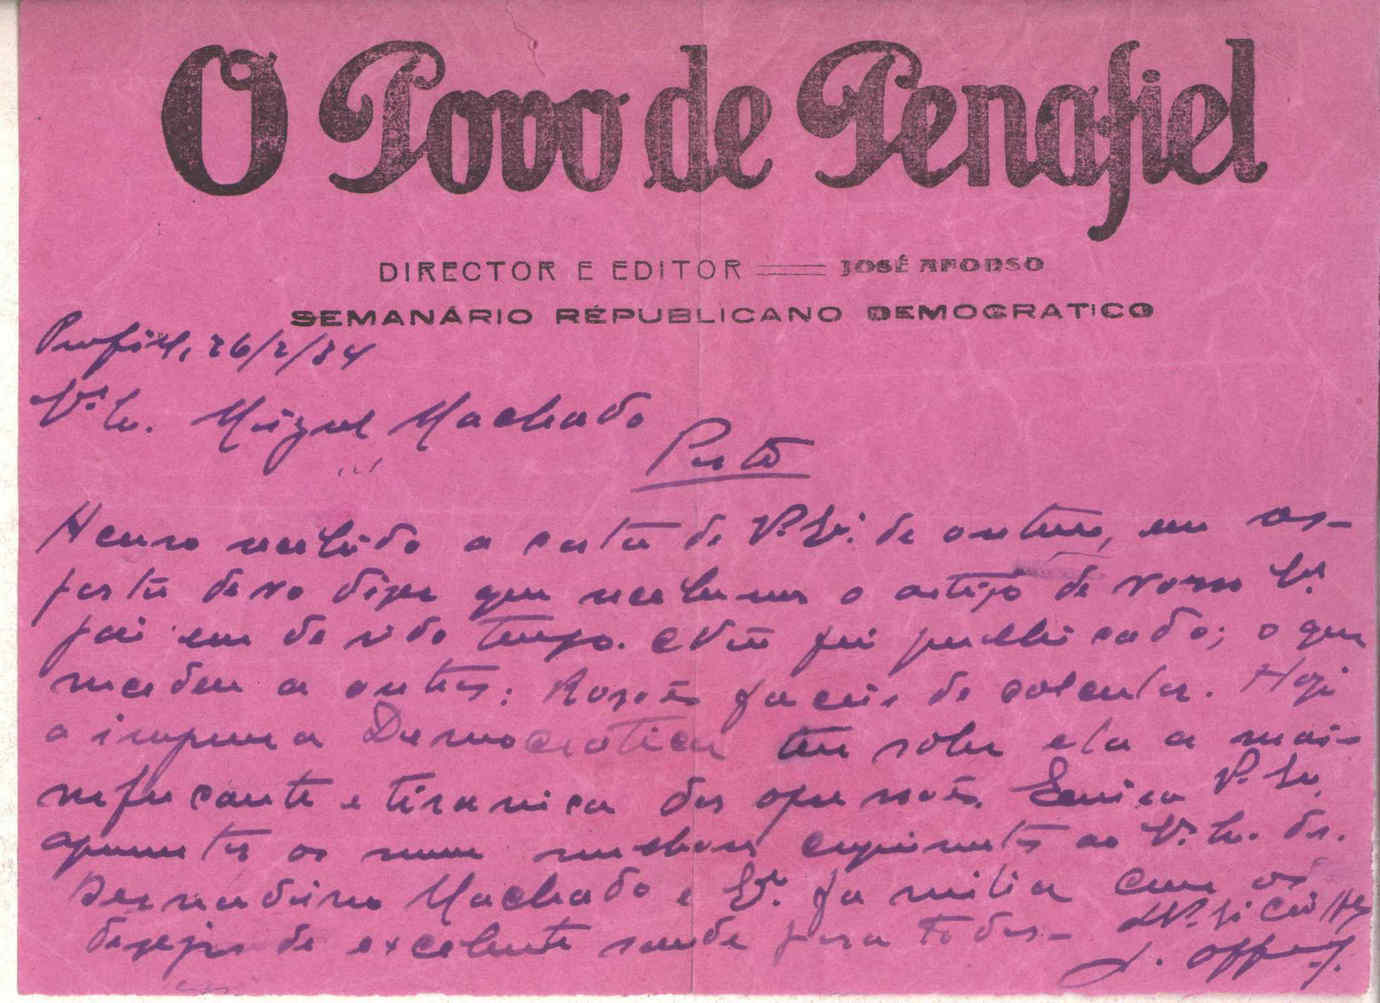 O Povo de Penafiel
DIRECTOR E EDITOR JOSÉ AFONSO
SEMANÁRIO RÉPUBLICANO DEMOGRATICO
Penafiel, 26/2/34
Miguel Machado
Porto
recebido a carta de V. Ex. de ontem, em res-
posta devo dizer que recebemos o artigo de vosso Ex.
pai em devido tempo. Não foi publicado; o que
sucedeu a outros. Razões faceis de calcular. Hoje
a imprensa Democratica tem sobre ela a mais
sufucante e tiranica das opressões. V. Ex.
apresentar os meus melhores cuprimentos ao V. Ex. dr.
Bernardino Machado e Ex. familia com os
desejos de excelente saude para todos